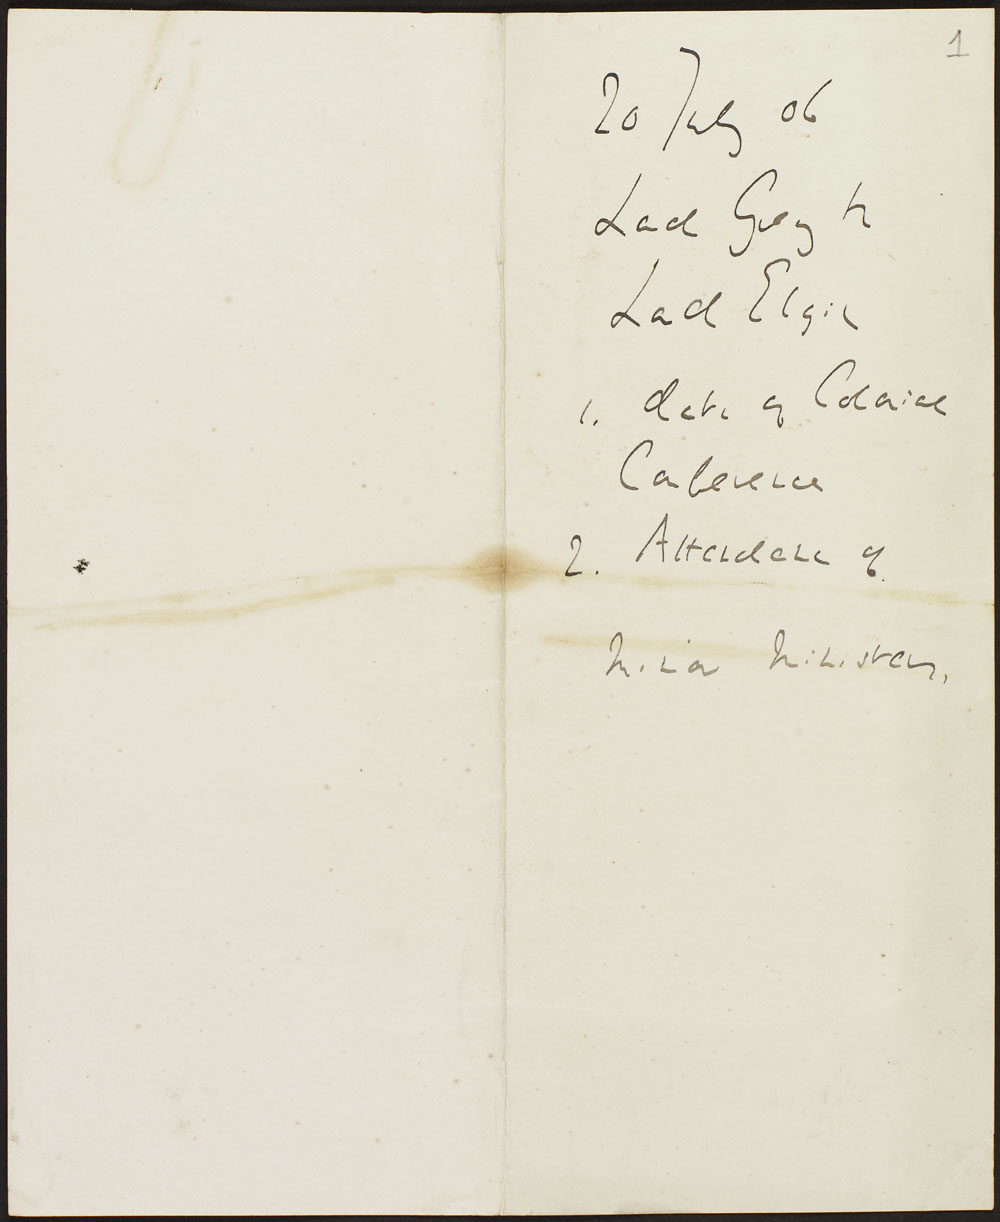 1
20 July 06
Lord Grey to
Lord Elgin
1. date of Colonial
Conference
2. Attendance of
Minor Ministers.